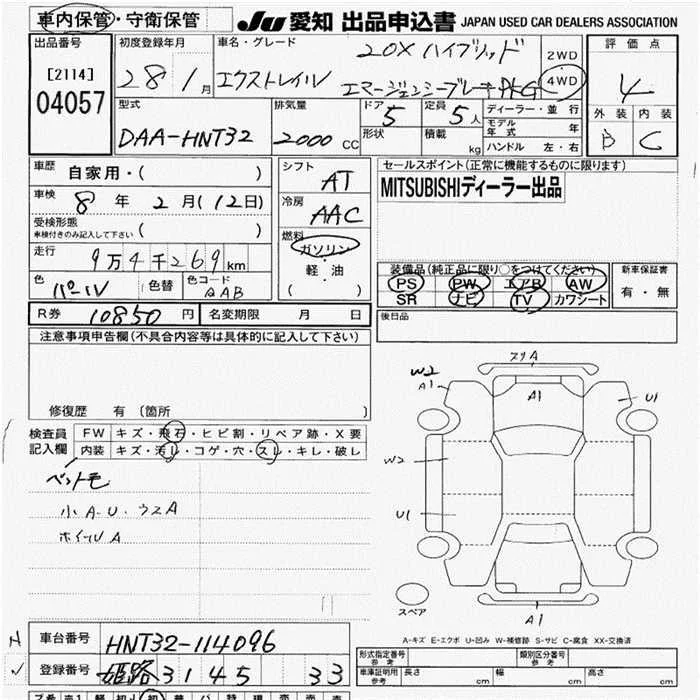 車内保管・守衛保管 JU 愛知 出品申込書 JAPAN USED CAR DEALERS ASSOCIATION
出品番号 初度登録年月 車名・グレード 20X ハイブリッド 2WD 評価点
[2114] 28年1月 エクストレイル エマージェンシーブレーキPKG 4WD 4
04057 型式 排気量 ドア 5 定員 5人 ディーラー・並行 外装 内装
DAA-HNT32 2000cc 形状 積載 kg モデル年式 年 B C
ハンドル 左・右
車歴 自家用・( ) シフト AT セールスポイント(正常に機能するものに限ります)
車検 8年2月(12日) 冷房 AAC MITSUBISHIディーラー出品
受検形態 ( )
車検付きのみ記入して下さい
走行 9万4千269km 燃料 ガソリン・軽油 ( )
色 パール 色替 色コード QAB
装備品(純正品に限り○をつけてください) 新車保証書
PS PW エアB AW 有・無
SR ナビ TV カワシート
R券 10850円 名変期限 月 日 後日品
注意事項申告欄(不具合内容等は具体的に記入して下さい)
修復歴 有 〔箇所 〕
検査員記入欄 FW キズ・飛石・ヒビ割・リペア跡・X要
内装 キズ・汚レ・コゲ・穴・スレ・キレ・破レ
ペット毛
小A・U・ウスA
ホイールA
スリA
W2
A1
A1
U1
W2
U1
スペア
A1
A-キズ E-エクボ U-凹み W-補修跡 S-サビ C-腐食 XX-交換済
車台番号 HNT32-114096
登録番号 姫路 3145 33
形式指定番号 参考 類別区分番号 参考
車庫証明用 参考 長さ cm 幅 cm 高さ cm